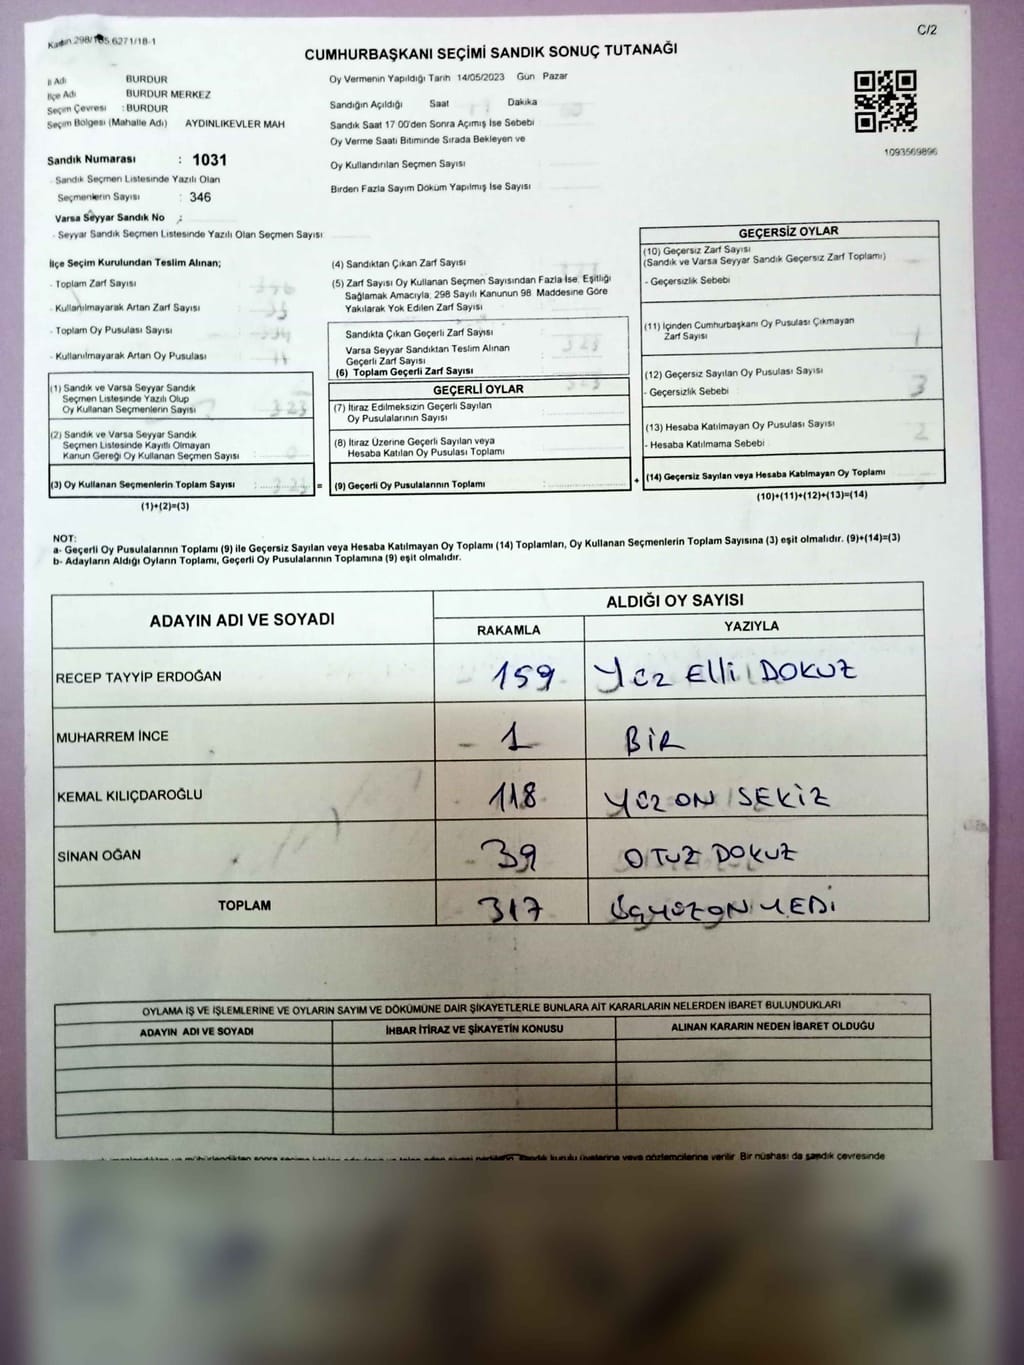 C/2
CUMHURBAŞKANI SEÇİMİ SANDIK SONUÇ TUTANAĞI
İl Adı BURDUR
İlçe Adı BURDUR MERKEZ
Seçim Çevresi : BURDUR
Seçim Bölgesi (Mahalle Adı) AYDINLIKEVLER MAH
Sandık Numarası : 1031
- Sandık Seçmen Listesinde Yazılı Olan
Seçmenlerin Sayısı : 346
Varsa Seyyar Sandık No :
- Seyyar Sandık Seçmen Listesinde Yazılı Olan Seçmen Sayısı
Oy Vermenin Yapıldığı Tarih 14/05/2023 Gün Pazar
Sandığın Açıldığı Saat Dakika
Sandık Saat 17 00'den Sonra Açımış İse Sebebi
Oy Verme Saati Bitiminde Sırada Bekleyen ve
Oy Kullandırılan Seçmen Sayısı
Birden Fazla Sayım Döküm Yapılmış İse Sayısı
1093569896
İlçe Seçim Kurulundan Teslim Alınan;
- Toplam Zarf Sayısı
- Kullanılmayarak Artan Zarf Sayısı
- Toplam Oy Pusulası Sayısı
- Kullanılmayarak Artan Oy Pusulası
(1) Sandık ve Varsa Seyyar Sandık
Seçmen Listesinde Yazılı Olup
Oy Kullanan Seçmenlerin Sayısı 323
(2) Sandık ve Varsa Seyyar Sandık
Seçmen Listesinde Kayıtlı Olmayan
Kanun Gereği Oy Kullanan Seçmen Sayısı
(3) Oy Kullanan Seçmenlerin Toplam Sayısı : 323
(1)+(2)=(3)
(4) Sandıktan Çıkan Zarf Sayısı
(5) Zarf Sayısı Oy Kullanan Seçmen Sayısından Fazla İse, Eşitliği
Sağlamak Amacıyla, 298 Sayılı Kanunun 98. Maddesine Göre
Yakılarak Yok Edilen Zarf Sayısı
Sandıkta Çıkan Geçerli Zarf Sayısı 323
Varsa Seyyar Sandıktan Teslim Alınan
Geçerli Zarf Sayısı
(6) Toplam Geçerli Zarf Sayısı 323
=
GEÇERLİ OYLAR
(7) İtiraz Edilmeksizin Geçerli Sayılan
Oy Pusulalarının Sayısı
(8) İtiraz Üzerine Geçerli Sayılan veya
Hesaba Katılan Oy Pusulası Toplamı
(9) Geçerli Oy Pusulalarının Toplamı
+
GEÇERSİZ OYLAR
(10) Geçersiz Zarf Sayısı
(Sandık ve Varsa Seyyar Sandık Geçersiz Zarf Toplamı)
- Geçersizlik Sebebi
(11) İçinden Cumhurbaşkanı Oy Pusulası Çıkmayan
Zarf Sayısı 1
(12) Geçersiz Sayılan Oy Pusulası Sayısı 3
- Geçersizlik Sebebi :
(13) Hesaba Katılmayan Oy Pusulası Sayısı 2
- Hesaba Katılmama Sebebi
(14) Geçersiz Sayılan veya Hesaba Katılmayan Oy Toplamı
(10)+(11)+(12)+(13)=(14)
NOT:
a- Geçerli Oy Pusulalarının Toplamı (9) ile Geçersiz Sayılan veya Hesaba Katılmayan Oy Toplamı (14) Toplamları, Oy Kullanan Seçmenlerin Toplam Sayısına (3) eşit olmalıdır. (9)+(14)=(3)
b- Adayların Aldığı Oyların Toplamı, Geçerli Oy Pusulalarının Toplamına (9) eşit olmalıdır.
ADAYIN ADI VE SOYADI ALDIĞI OY SAYISI
RAKAMLA YAZIYLA
RECEP TAYYİP ERDOĞAN 159 Yüz Elli DOKUZ
MUHARREM İNCE 1 BİR
KEMAL KILIÇDAROĞLU 118 YÜZ ON SEKİZ
SİNAN OĞAN 39 OTUZ DOKUZ
TOPLAM 317 ÜÇYÜZON YEDİ
OYLAMA İŞ VE İŞLEMLERİNE VE OYLARIN SAYIM VE DÖKÜMÜNE DAİR ŞİKAYETLERLE BUNLARA AİT KARARLARIN NELERDEN İBARET BULUNDUKLARI
ADAYIN ADI VE SOYADI İHBAR İTİRAZ VE ŞİKAYETİN KONUSU ALINAN KARARIN NEDEN İBARET OLDUĞU
sandık kurulu üyelerine veya gözlemcilerine verilir. Bir nüshası da sandık çevresinde